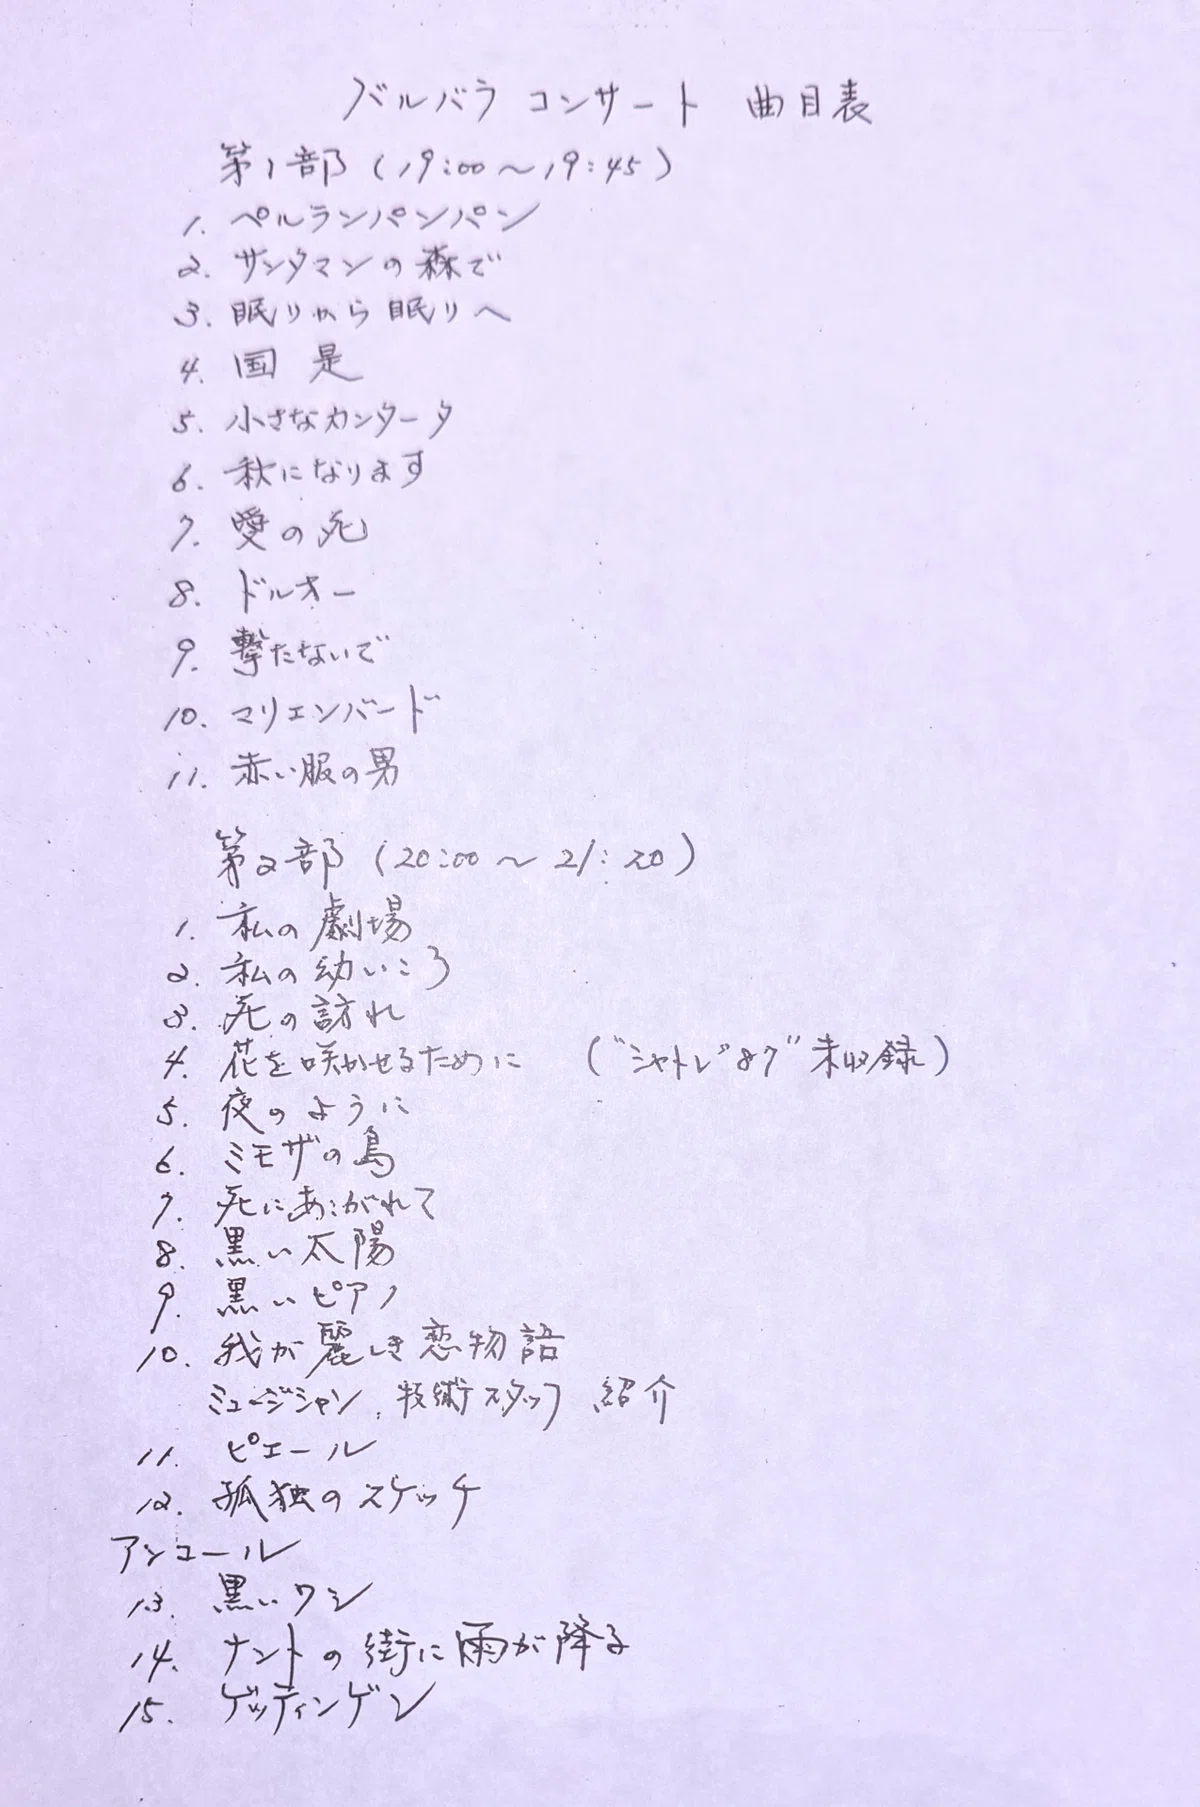 バルバラ コンサート 曲目表
第1部 (19:00〜19:45)
1. ペルランパンパン
2. サンタマンの森で
3. 眠りから眠りへ
4. 国是
5. 小さなカンタータ
6. 秋になります
7. 愛の死
8. ドルオー
9. 撃たないで
10. マリエンバード
11. 赤い服の男
第2部 (20:00〜21:20)
1. 私の劇場
2. 私の幼いころ
3. 死の訪れ
4. 花を咲かせるために ("シャトレ87"未収録)
5. 夜のように
6. ミモザの島
7. 死にあこがれて
8. 黒い太陽
9. 黒いピアノ
10. 我が麗しき恋物語
ミュージシャン、技術スタッフ 紹介
11. ピエール
12. 孤独のスケッチ
アンコール
13. 黒いワシ
14. ナントの街に雨が降る
15. ゲッティンゲン